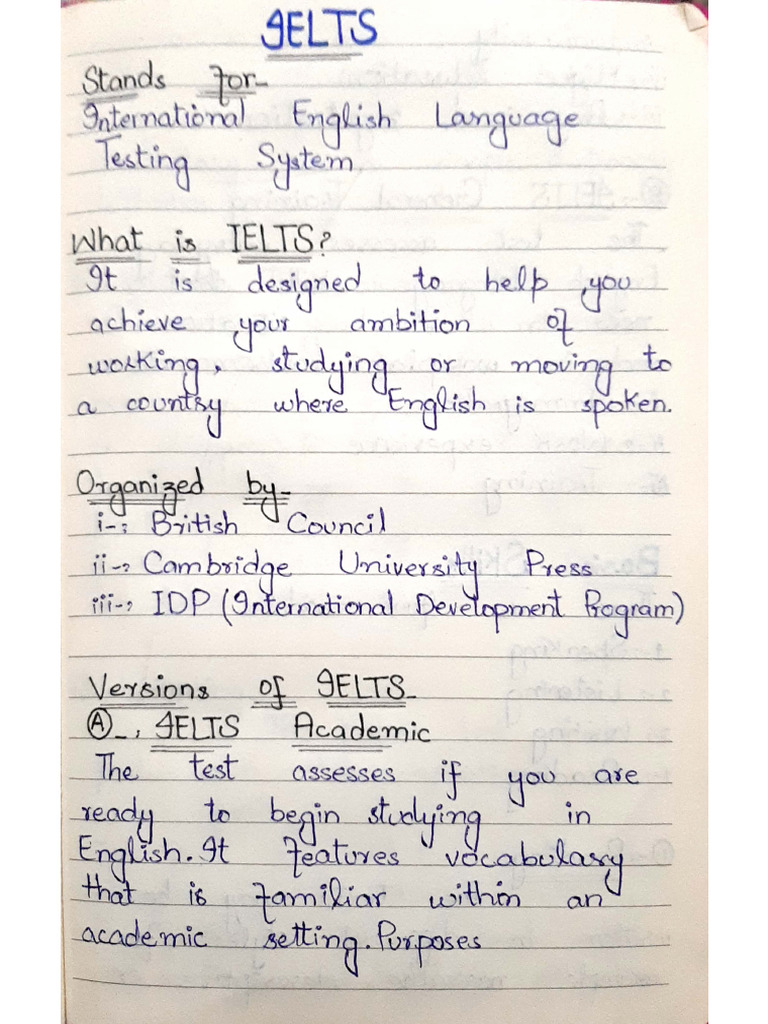 IELTS
Stands for-
International English Language
Testing System
What is IELTS?
It is designed to help you
achieve your ambition of
working, studying or moving to
a country where English is spoken.
Organized by-
i-: British Council
ii-: Cambridge University Press
iii-: IDP (International Development Program)
Versions of IELTS-
A-, IELTS Academic
The test assesses if you are
ready to begin studying in
English. It features vocabulary
that is familiar within an
academic setting. Purposes